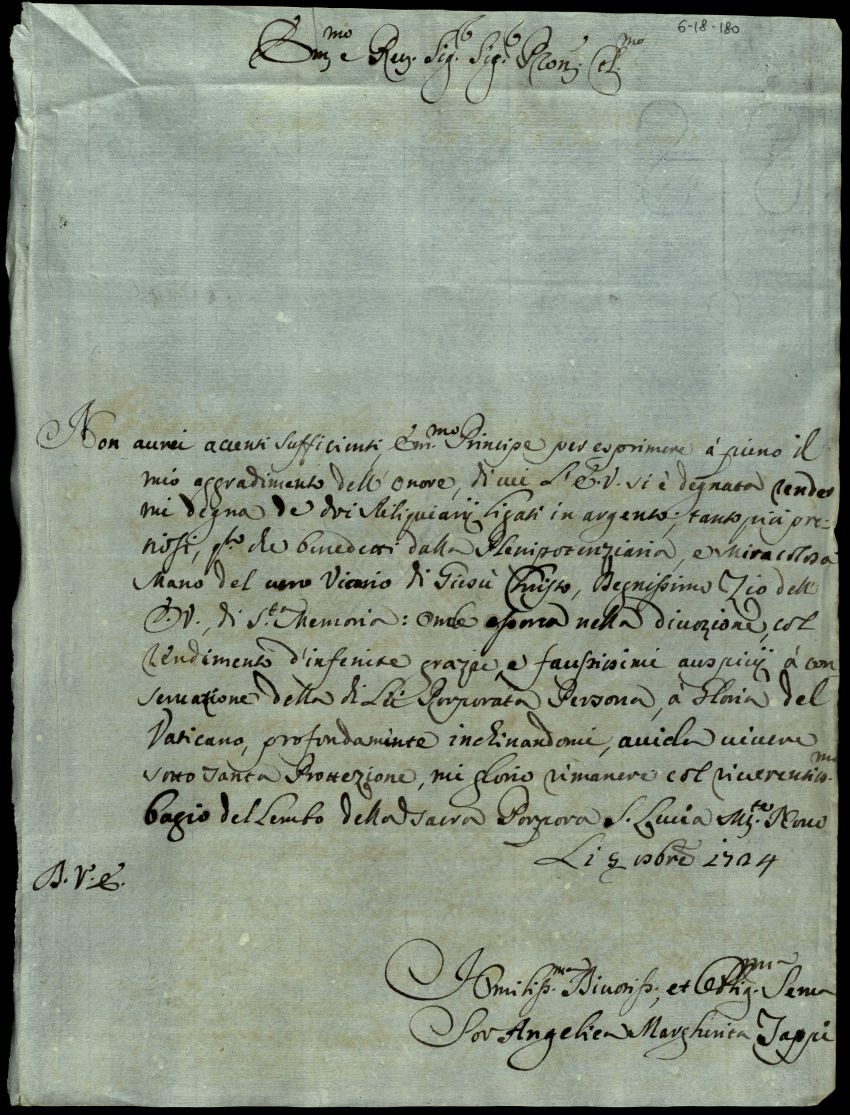 6-18-180
Em.mo e Rev. Sig.r Sig.r Pron. Col.mo
Non aurei accenti sufficienti Em.mo Principe per esprimere à pieno il
mio aggradimento dell'onore, di cui L'E.V. si è degnata render
mi degna de dui Reliquiarij ligati in argento, tanto più pre-
tiosi, q.to che benedetti dalla Plenipotenziaria, e Miracolosa
Mano del vero Vicario di Giesù Christo, Degnissimo Zio dell'
E.V., di S.ta Memoria: onde nella divozione, col
rendimento d'infinite grazie, e faustissimi auspicij à con
seruazione della di Lei Porporata Persona, à Gloria del
Vaticano, profondamente inchinandomi, auida uiuere
sotto tanta Protezione, mi glorio rimanere col riuerentiss.mo
bagio del Lembo della sacra Porpora S. Lucia M.te Nouo
Li 8bre 1724
D. V. E.
Humiliss.ma Diuotiss., et Obblig.ma Serua
Sor Angelica Margherita Zappi